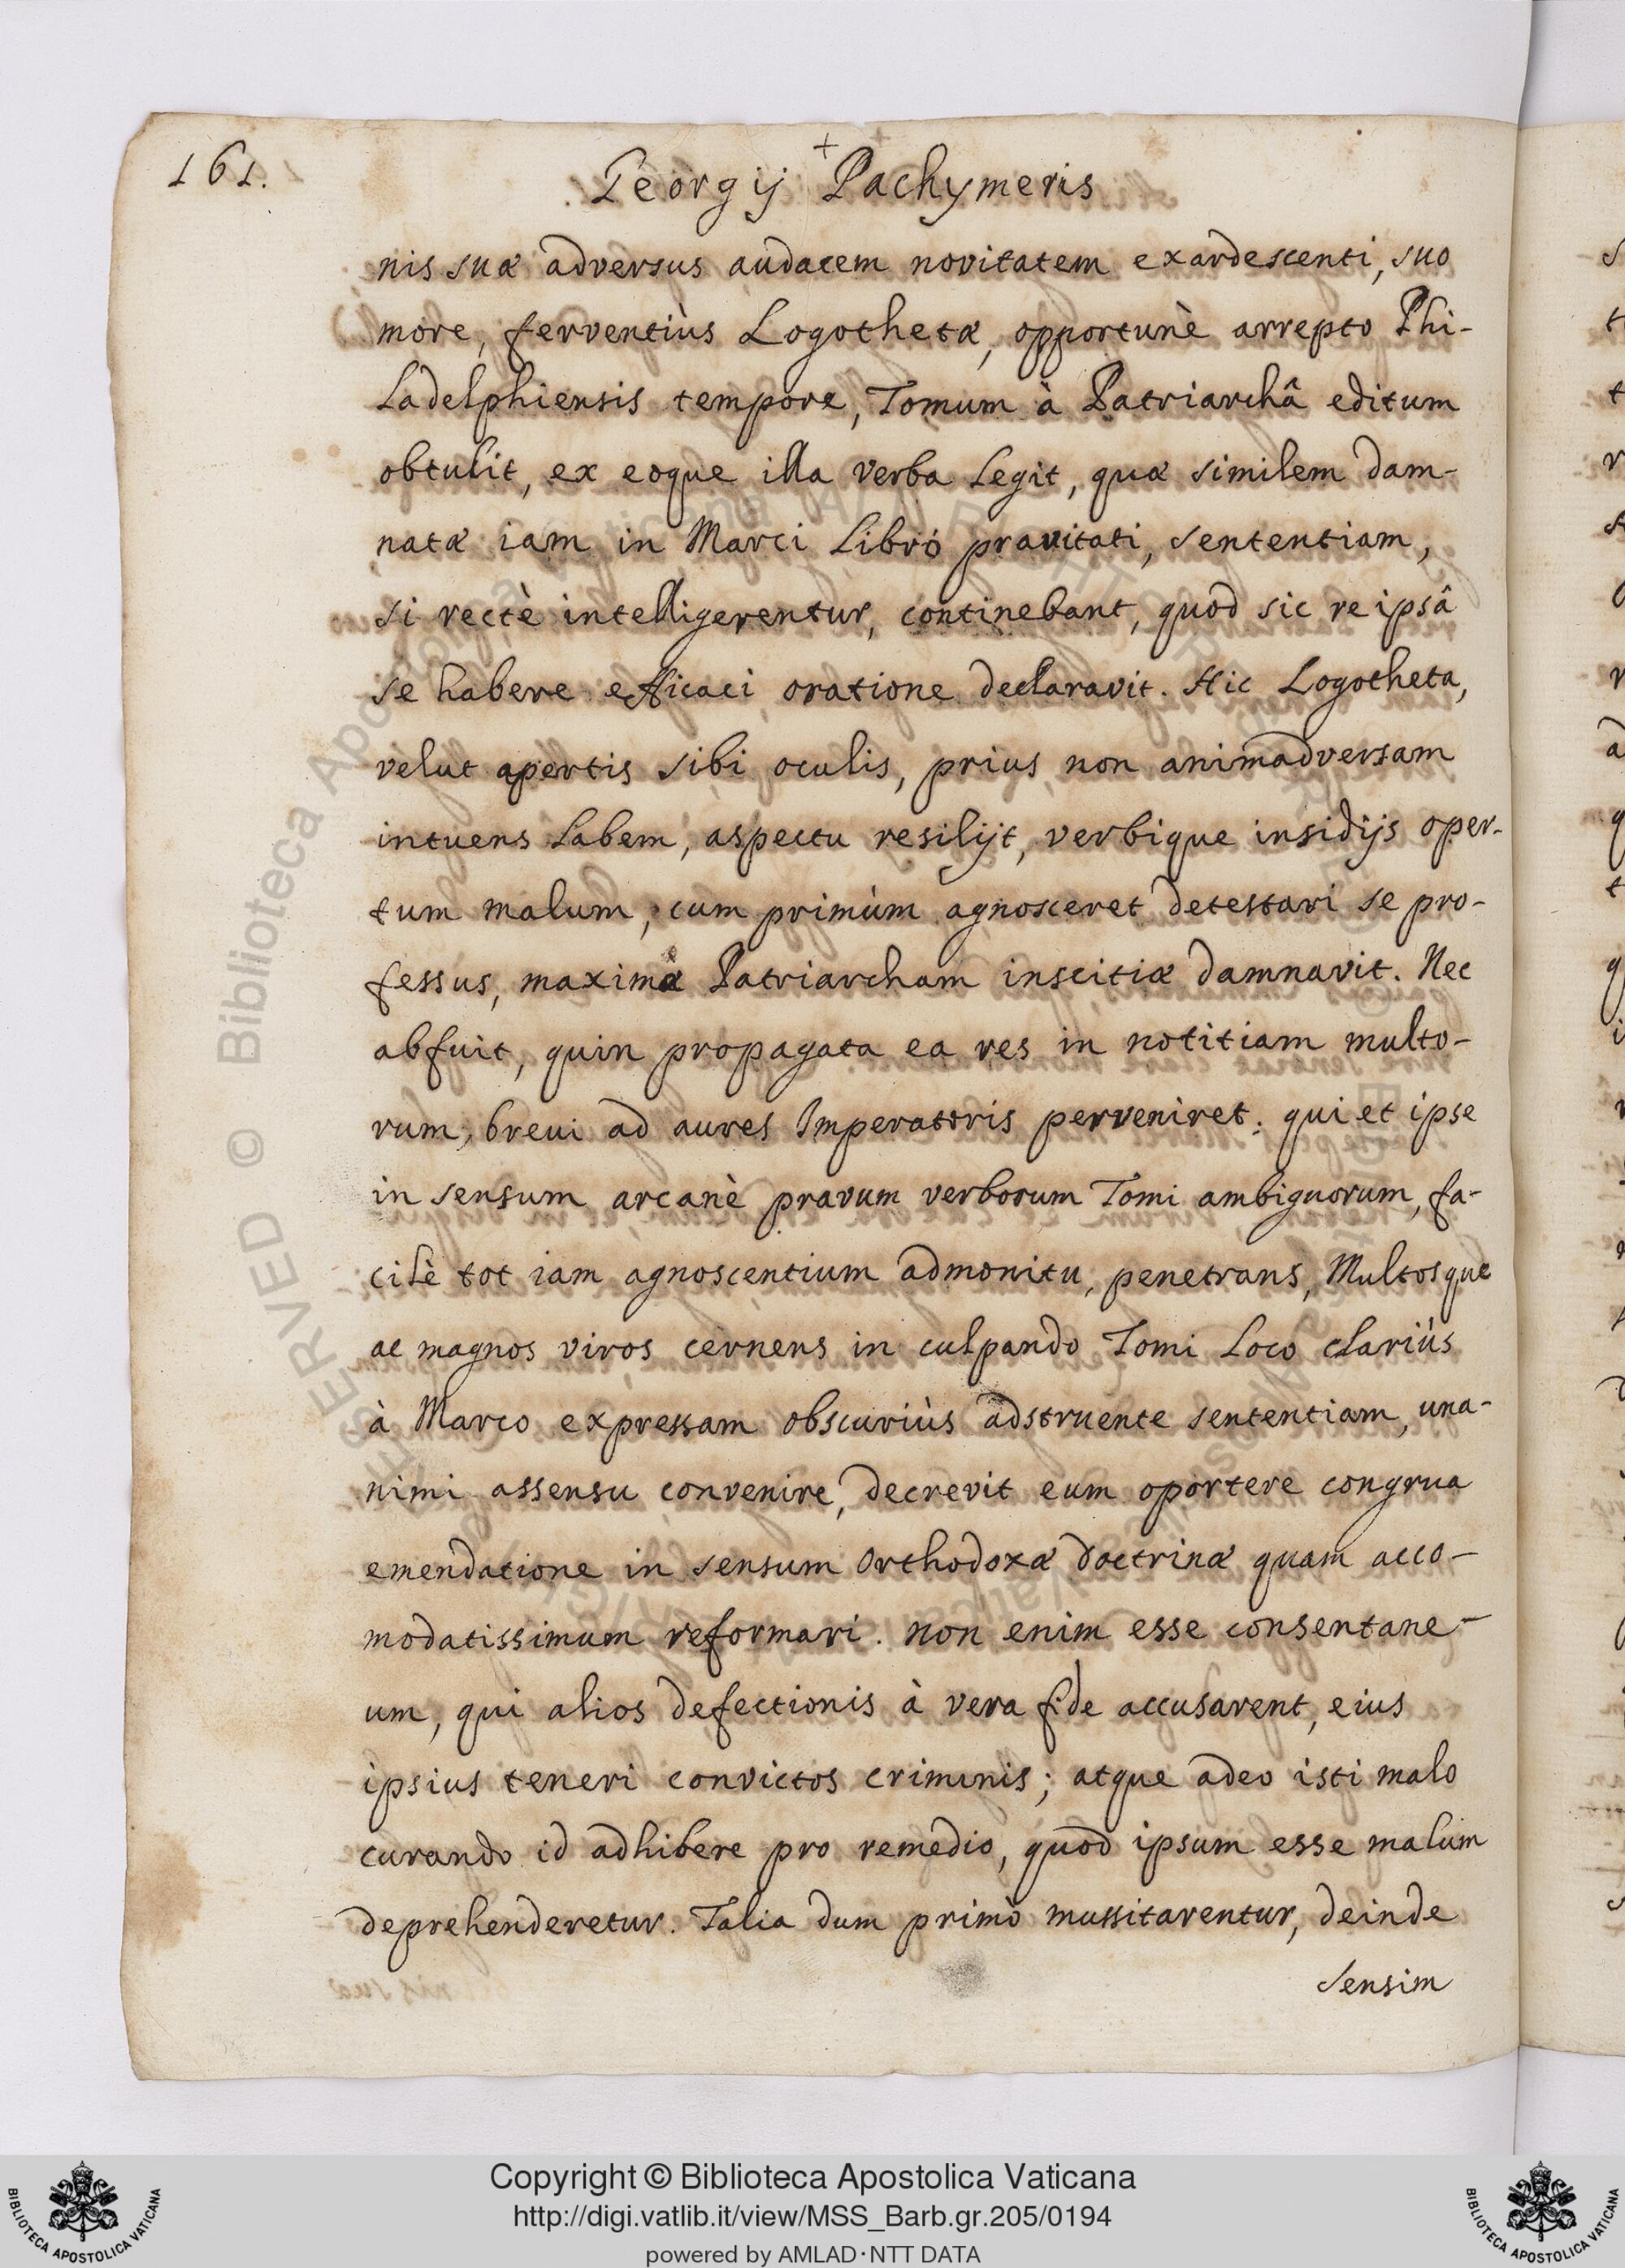 161.
+
Georgij Pachymeris
nis suæ adversus audacem novitatem exardescenti, suo
more, ferventiùs Logothetæ, opportunè arrepto Phi-
ladelphiensis tempore, Tomum à Patriarchâ editum
obtulit, ex eoque illa verba legit, quæ similem dam-
natæ iam in Marci libro pravitati, sententiam,
si rectè intelligerentur, continebant, quod sic re ipsâ
se habere efficaci oratione declaravit. Hic Logotheta,
velut apertis sibi oculis, prius non animadversam
intuens labem, aspectu resilijt, verbique insidijs oper-
tum malum, cum primùm agnosceret detestari se pro-
fessus, maximæ Patriarcham inscitiæ damnavit. Nec
abfuit, quin propagata ea res in notitiam multo-
rum, brevi ad aures Imperatoris perveniret: qui et ipse
in sensum arcanè pravum verborum Tomi ambiguorum, fa-
cilè tot iam agnoscentium admonitu, penetrans, Multosque
ac magnos viros cernens in culpando Tomi loco clariùs
à Marco expressam obscuriùs adstruente sententiam, una-
nimi assensu convenire, decrevit eum oportere congrua
emendatione in sensum Orthodoxæ doctrinæ quam acco-
modatissimum reformari. non enim esse consentane-
um, qui alios defectionis à vera fide accusarent, eius
ipsius teneri convictos criminis; atque adeo isti malo
curando id adhibere pro remedio, quod ipsum esse malum
deprehenderetur. Talia dum primò mussitarentur, deinde
sensim
Copyright © Biblioteca Apostolica Vaticana
http://digi.vatlib.it/view/MSS_Barb.gr.205/0194
powered by AMLAD·NTT DATA
BIBLIOTECA APOSTOLICA VATICANA
BIBLIOTECA APOSTOLICA VATICANA